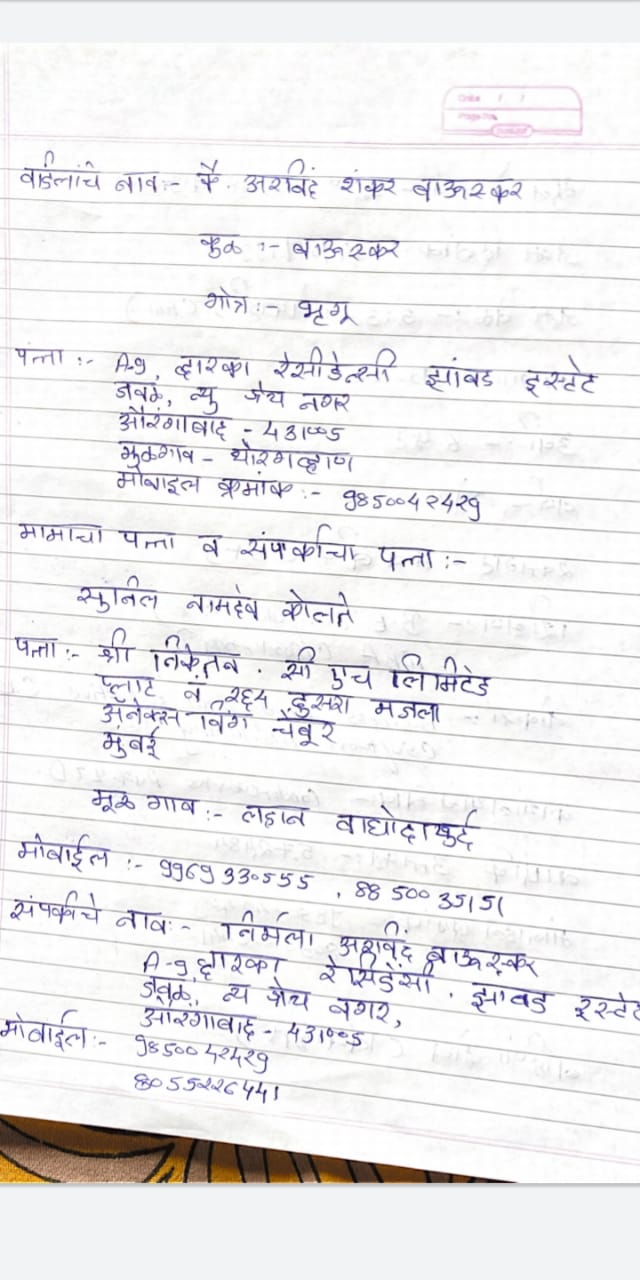 Date / /
Page No.
वडिलांचे नाव:- कै. अरविंद शंकर बाऊस्कर
कुळ :- बाऊस्कर
गोत्र:- भृगू
पत्ता :- A-9, द्वारका रेसीडेन्सी झांबड इस्टेट
जवळ, न्यु श्रेय नगर
औरंगाबाद - 431005
मुळगाव - थोरगव्हाण
मोबाईल क्रमांक:- 9850042429
मामाचा पत्ता व संपर्काचा पत्ता:-
सुनिल नामदेव कोलते
पत्ता:- श्री निकेतन. सी एच लिमिटेड
प्लाट नं २६५ दुसरा मजला
अनेक्स विंग चेंबूर
मुंबई
मूळ गाव:- लहान वाघोदा खुर्द
मोबाईल :- 9969330555, 8850035151
संपर्काचे नाव:- निर्मला अरविंद बाऊस्कर
A-9 द्वारका रेसिडेंसी. झांबड इस्टेट
जवळ, न्यु श्रेय नगर,
औरंगाबाद- 431005
मोबाईल:- 9850042429
8055226441